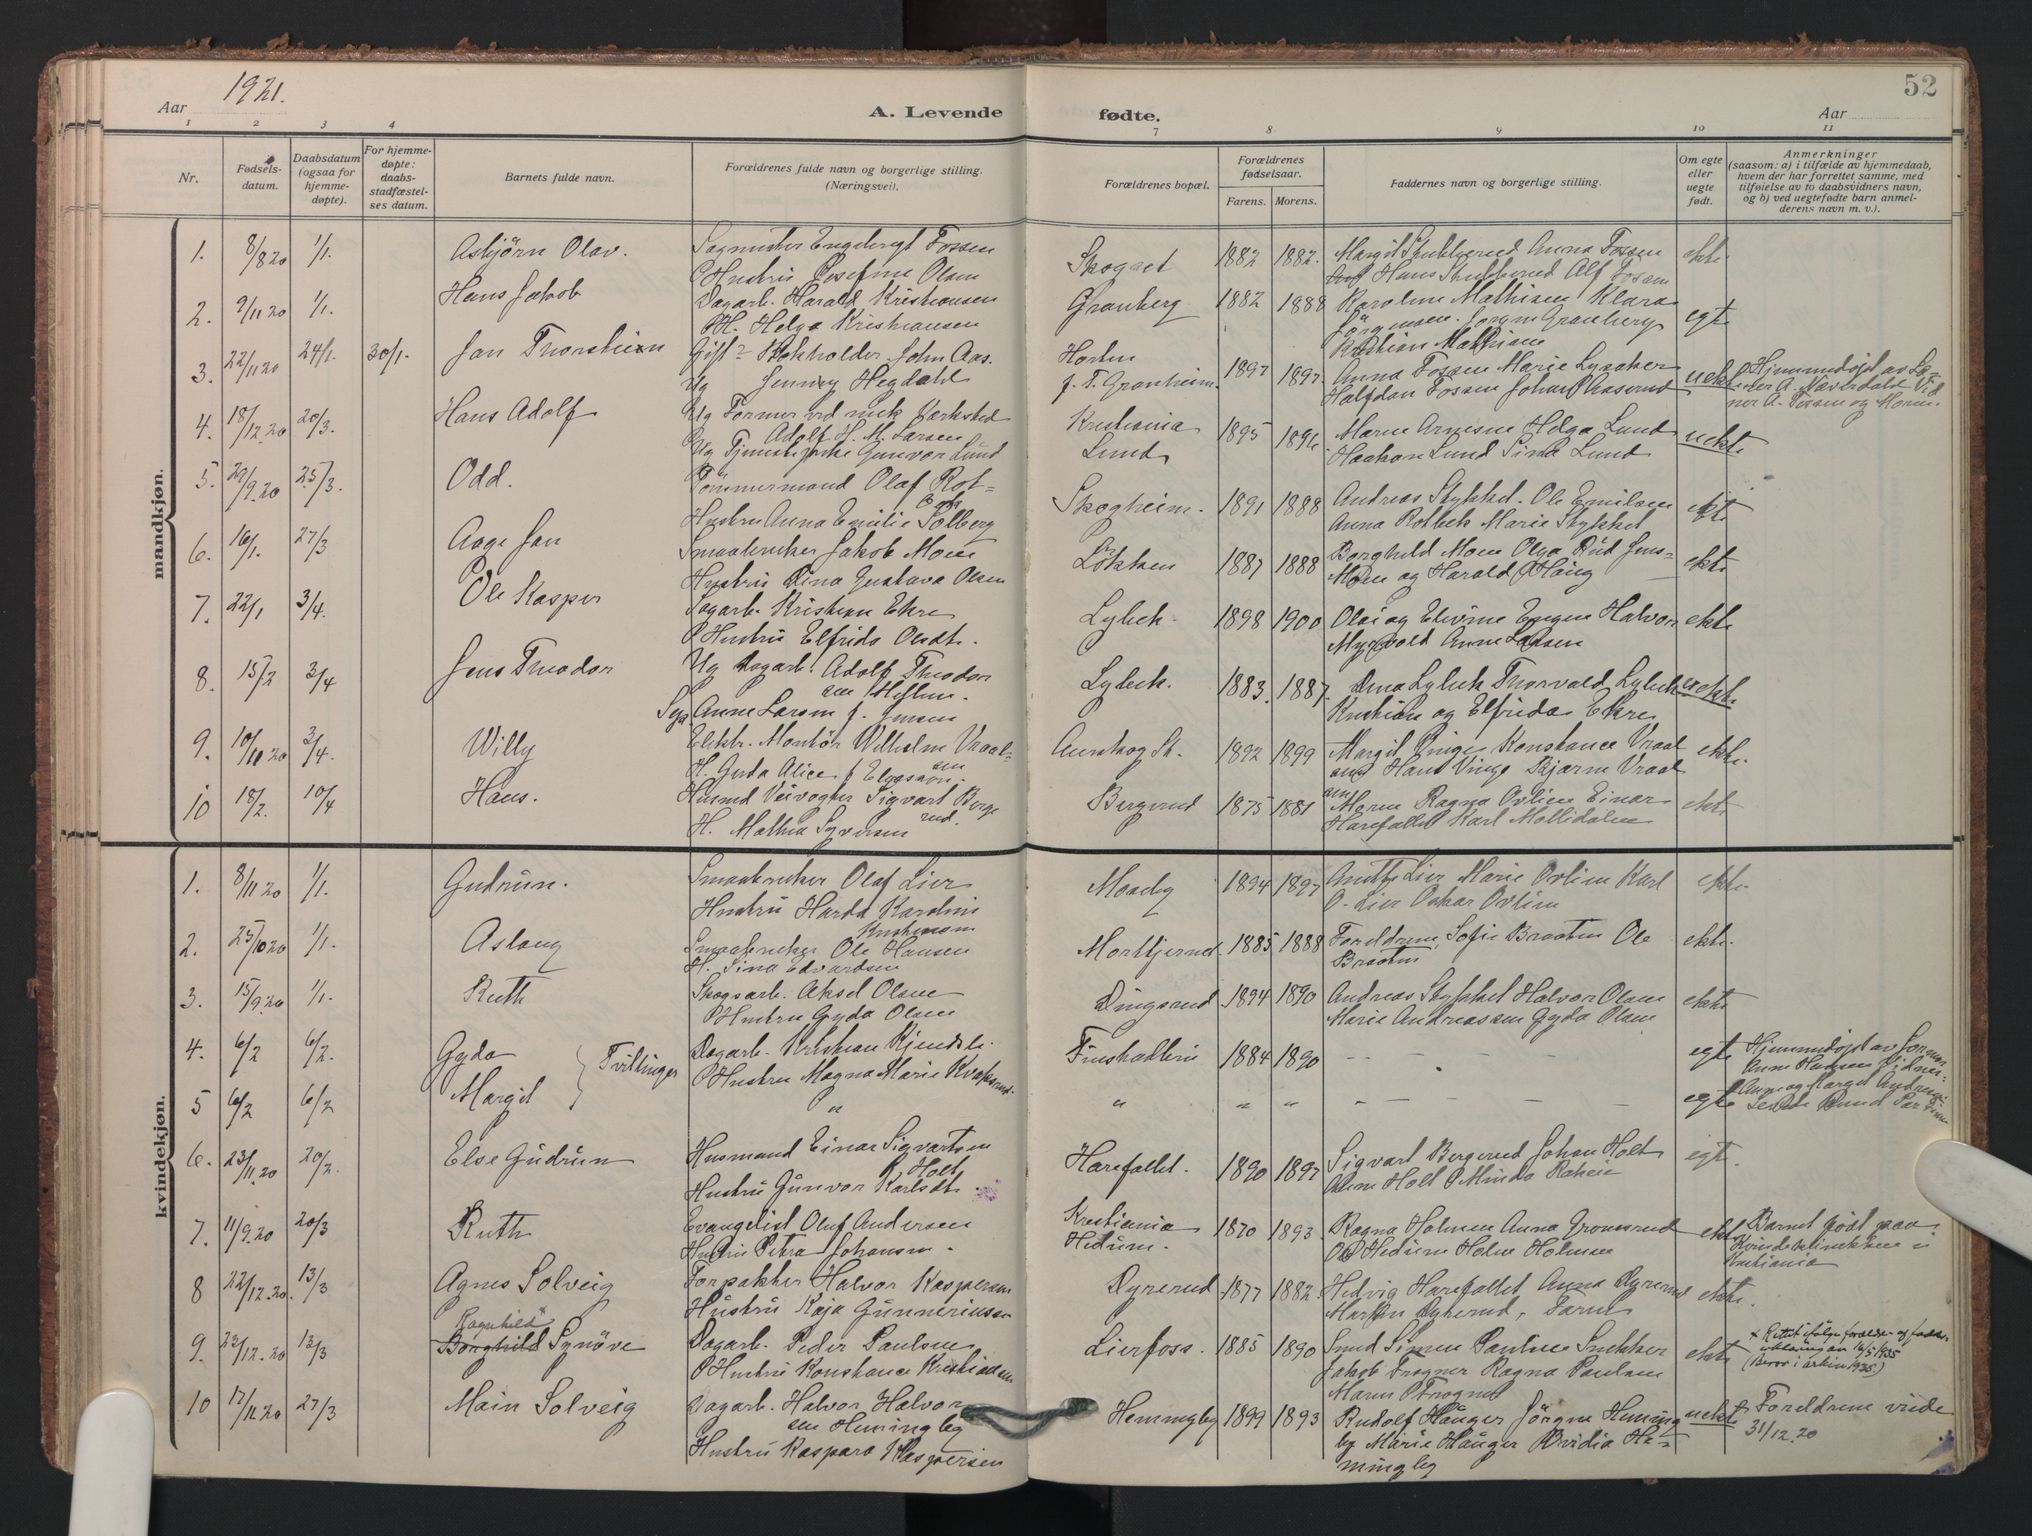 52
Aar 1921.
A. Levende fødte.
Aar
1 2 3 4 7 8 9 10 11
Nr.
Fødsels-
datum.
Daabsdatum
(ogsaa for
hjemme-
døpte).
For hjemme-
døpte:
daabs-
stadfæstel-
ses datum.
Barnets fulde navn.
Forældrenes fulde navn og borgerlige stilling.
(Næringsvei).
Forældrenes bopæl.
Forældrenes
fødselsaar.
Farens. Morens.
Faddernes navn og borgerlige stilling.
Om egte
eller
uegte
født.
Anmerkninger
(saasom: a) i tilfælde av hjemmedaab,
hvem der har forrettet samme, med
tilføielse av to daabsvidners navn,
og b) ved uegtefødte barn anmel-
derens navn m. v.).
mandkjøn.
1. 8/8 20 1/1. Asbjörn Olav. Sagmester Engebregt Fossen Skoget 1882 1882. Margit Stubberud Anna Fossen ekte
Hustru Josefine Olsen Hans Stubberud Alf Fossen
2. 9/11 20 1/1. Hans Jakob Dagarb. Harald Kristiansen Granberg 1882 1888 Karoline Mathisen Klara egte
H. Helga Kristiansen Jörgensen. Jörgen Granberg
Kristian Mathisen
3. 22/11 20 24/1. 30/1. Jan Thorstein Gift John Aas. Horten 1897 1897. Anna Fossen Marie Lysaker uekte Hjemmedøpt av
Ug Jenny Hegdahl f. T. Granheim. Halfdan Fossen Johan Aaserud
A. Fossen og Moren.
4. 18/12.20 20/3. Hans Adolf Ug Former ved mek Værksted Kristiania 1895 1896 Maren Arnesen Helga Lund uekte
Adolf H. M. Larsen
Ug Tjenestepike Gunvor Lund Lund Haakon Lund Sina Lund
5. 29/9.20 25/3. Odd. Tömmermand Olaf Rot= Skogheim. 1891 1888 Andreas Stykket. Ole Emilsen egte
Hustru Anna Emilie Solberg Anna Rotbek Marie Stykket
6. 16/1. 27/3 Aage Jan Smaabruker Jakob Moen Løkken 1887 1888 Borghild Moen Olga Rud Jens ekte
Hustru Dina Gustava Olsen Moen og Harald Haug
7. 22/1 3/4. Ole Kasper Sagarb. Kristian Ekre Lybek. 1898 1900 Olai og Elvine Engen Halvor ekte
Hustru Elfrida Olsdt. Myrvold Anne Larsen
8. 15/2 3/4 Jens Teodor Ug Dagarb. Adolf Theodor Lybeck. 1883. 1887. Dina Lybeck Thorvald Lybeck uekte
Anne Larsen f. Jensen Kristian og Elfrida Ekre
9. 10/10 20 3/4. Willy Elektr. Montör Wilhelm Vraal= Aurskog St. 1892 1899 Margit Vinge Konstance Vraal ekte.
sen
H. Gerda Alice f Elgsaon. sen Hans Vinge Bjarne Vraal
sen
10 18/2. 10/4 Hans. Husmd Veivogter Sigvart Berge Bergerud 1875 1881 Maren Ragna Ovlien Einar ekte
rud.
H. Mathea Syversen Harefallet Karl Mellidalen
kvindekjøn.
1. 8/11 20 1/1. Gudrun. Smaabruker Olaf Lier Moseby 1894 1897 Anette Lier Marie Ovlien Karl ekte
Hustru Harda Karoline O. Lier Oskar Ovlien
Kristiansen
2. 25/10 20 1/1. Aslaug Smaabruker Ole Hansen Mortbjerud. 1885 1888 Foreldrene, Sofie Braaten Ole ekte.
H. Sina Edvardsen Braaten
3. 15/9.20 1/1. Ruth Skogsarb. Aksel Olsen Dingsrud 1894 1890 Andreas Stykket Halvor Olsen ekte
Hustru Gyda Olsen Marie Andreassen Gyda Olsen
4. 6/2 6/2. Gyda Tvillinger Dagarb. Kristian Kjendsli. 1884 1890 – – – – egte Hjemmedøpt av
Hustru Magna Marie
5 6/2 6/2 Margit „ „ „ „ – – – – – egte
6. 23/11.20 20/2. Else Gudrun Husmand Einar Sigvartsen Harefallet. 1890 1897 Sigvart Bergerud Johan Holt egt.
Holt
Hustru Gunvor Karlsdt. Holt
7. 11/9.20 20/3 Ruth Evangelist Oluf Andersen Kristiania 1870 1893. Ragna Holmen Anna ekte Barnet født paa
Hustru Petra Johansen. Hedum. Hedum Holm Holmsen Kvindeklinikken i
Kristiania
8 22/12.20. 13/3 Agnes Solveig Forpakter Halvor Kaspersen Dyrerud 1877 1882. Hedvig Harefallet Anna Dyrerud ekte.
Hustru Kaja Gunneriusen Martin Dyrerud, Faren
Ragnhild
9. 23/12.20 13/3 Borghild Synöve Dagarb. Peder Paulsen Lierfoss. 1885 1890 Simen Paulsen Snekker ekte + Rettet ifølge forældre- og fadder
erklæring av 16/5 1935
Hustru Konstance Kristiansen Jakob Frogner Ragna Paulsen (Bevor i arkiv 1935)
Maren Frogner
10 17/11.20 27/3 Main Solveig Dagarb. Halvor Halvor Hemingby 1899 1893 Rudolf Hauger Jörgen Heming uekte Foreldrene viede
sen Hemingby by Marie Hauger Ovidia He= 31/12.20
Hustru Kaspara Kaspersen mingby